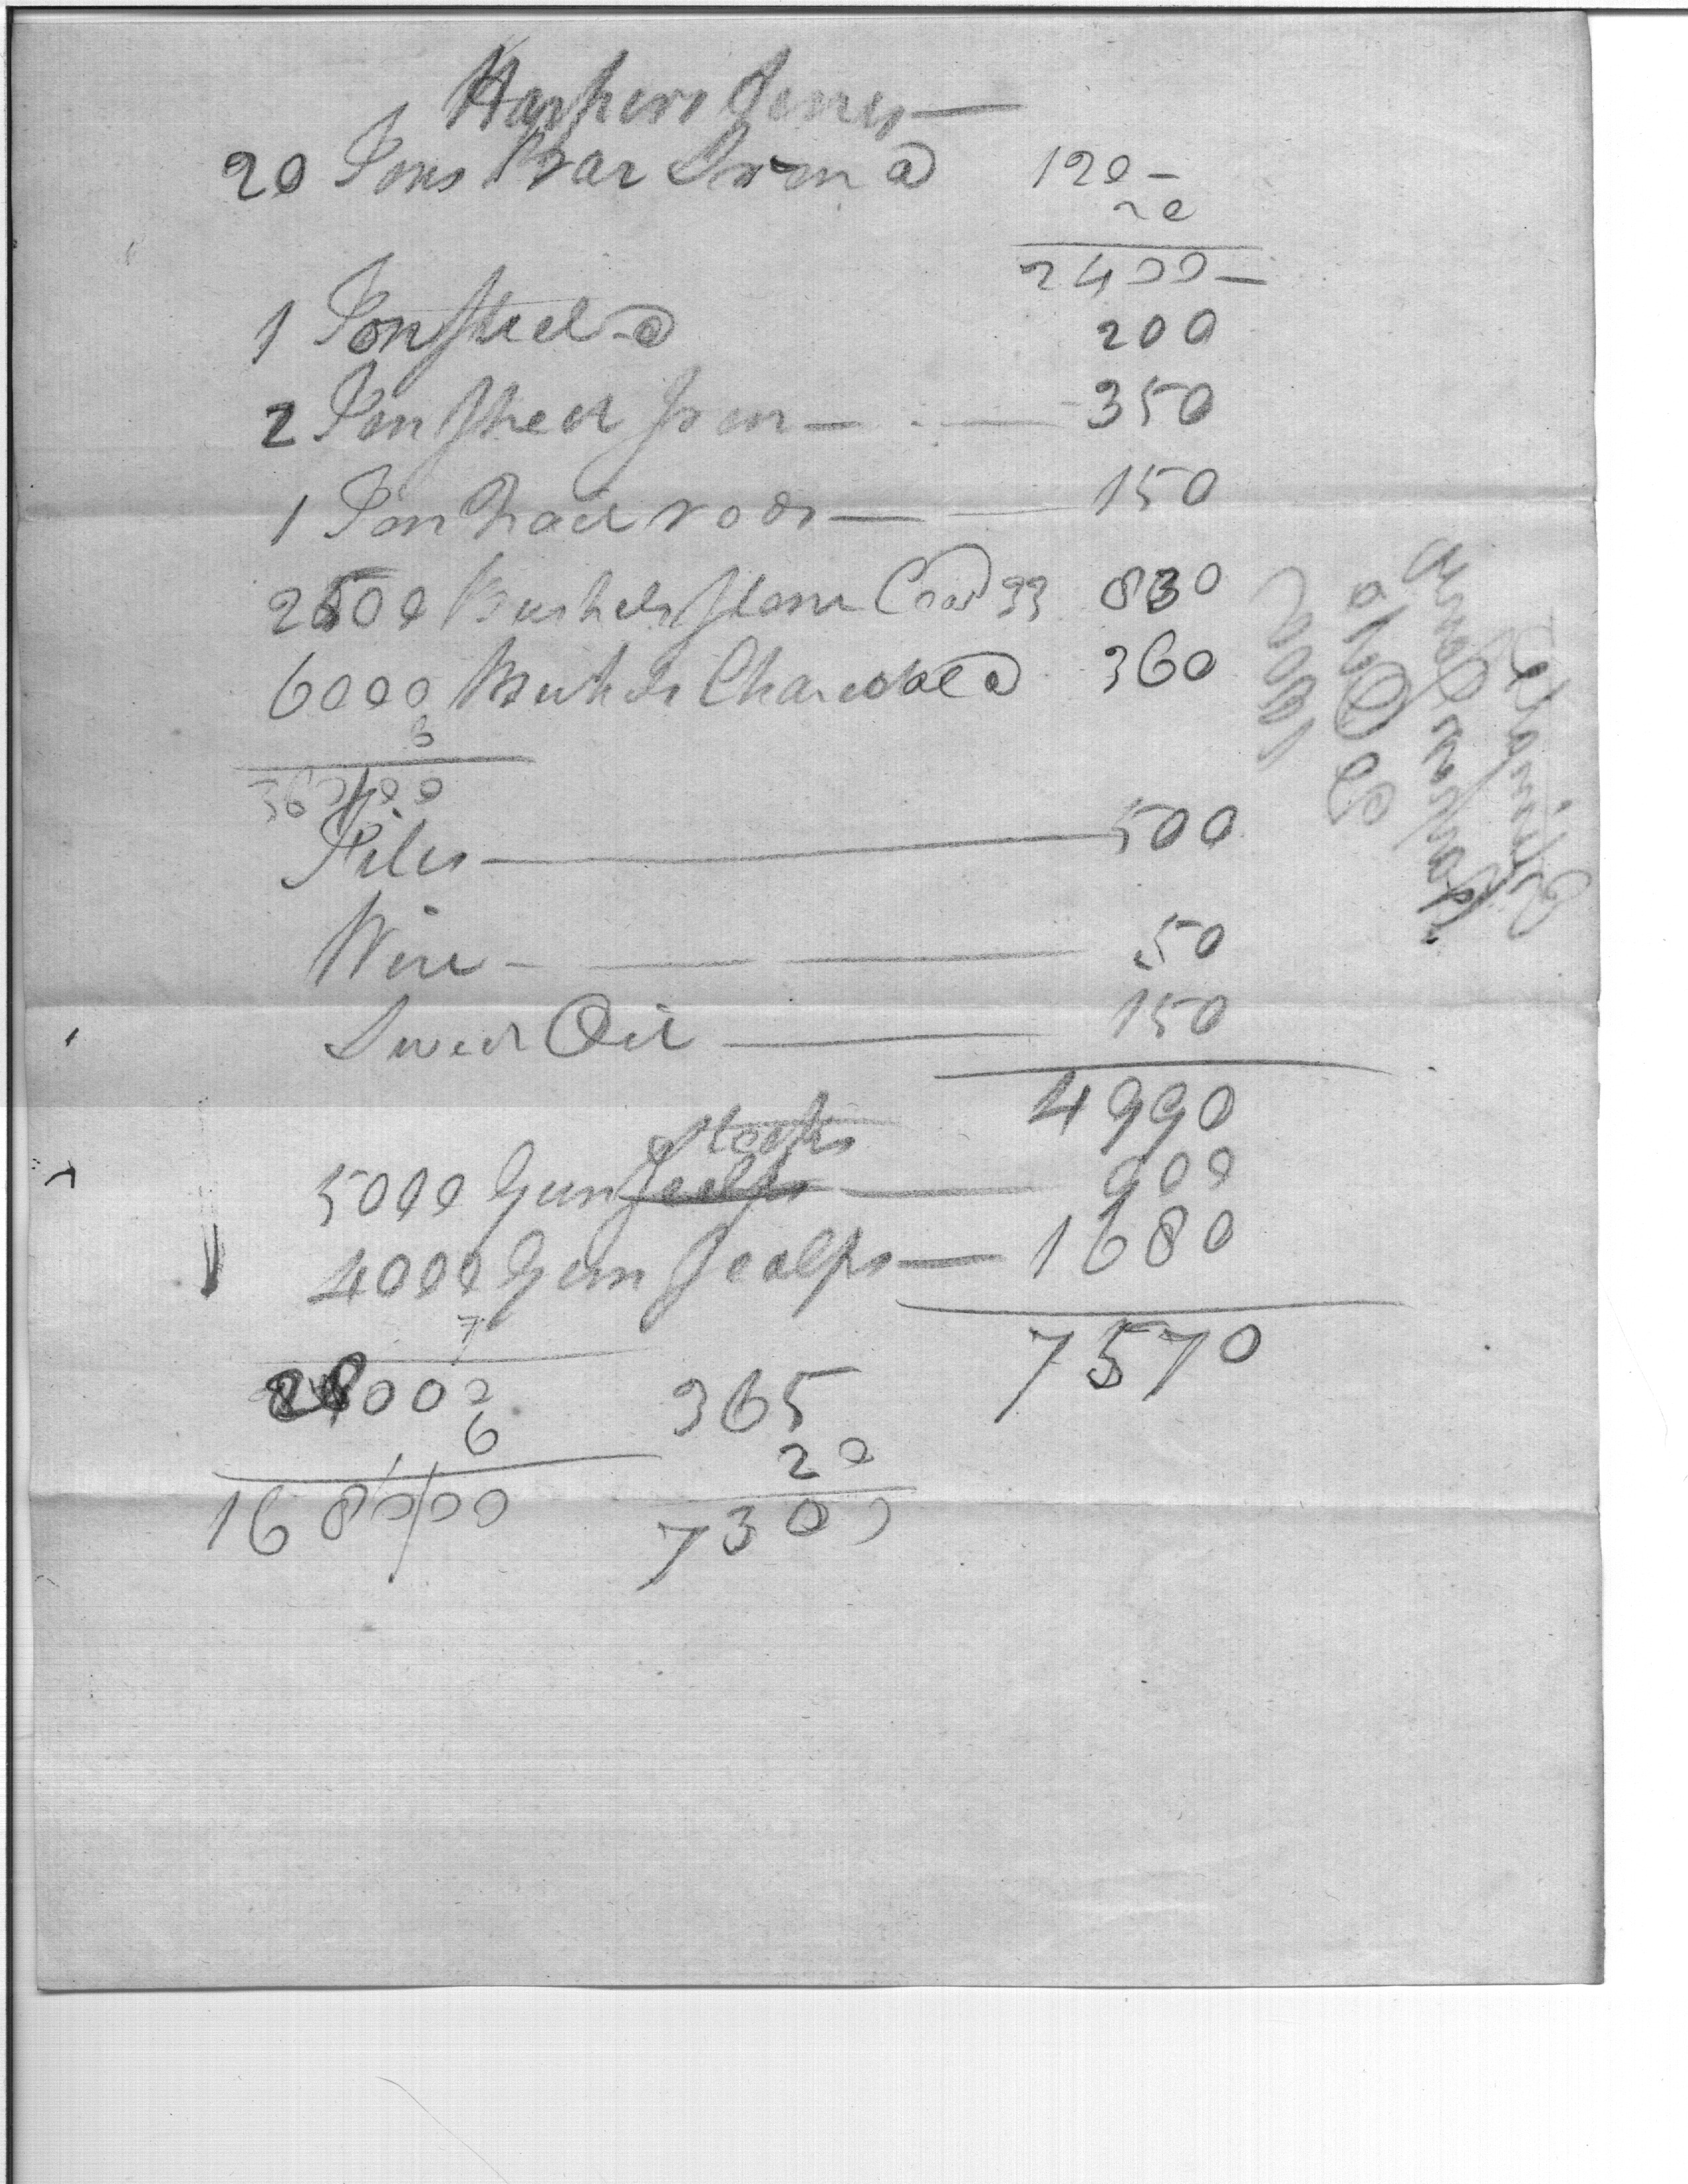 Harpers Ferry —
20 Tons Bar Iron @ 120 —
20
2400 —
1 Ton Steel @ 200
2 Ton Sheet Iron — - — 350
1 Ton Nail rods — — 150
2500 Bushels Stone Coal 33 830
6000 Bushels Charcoal @ 360
6
360/00
Files — 500
Wire - — — — 50
Sweet Oil — 150
4990
Stocks
5000 Gun Scalps — 900
4000 Gun Scalps — 1680
7
7570
28000
6
1680/00
365
20
7300
Estimate
Harpers Ferry
1800